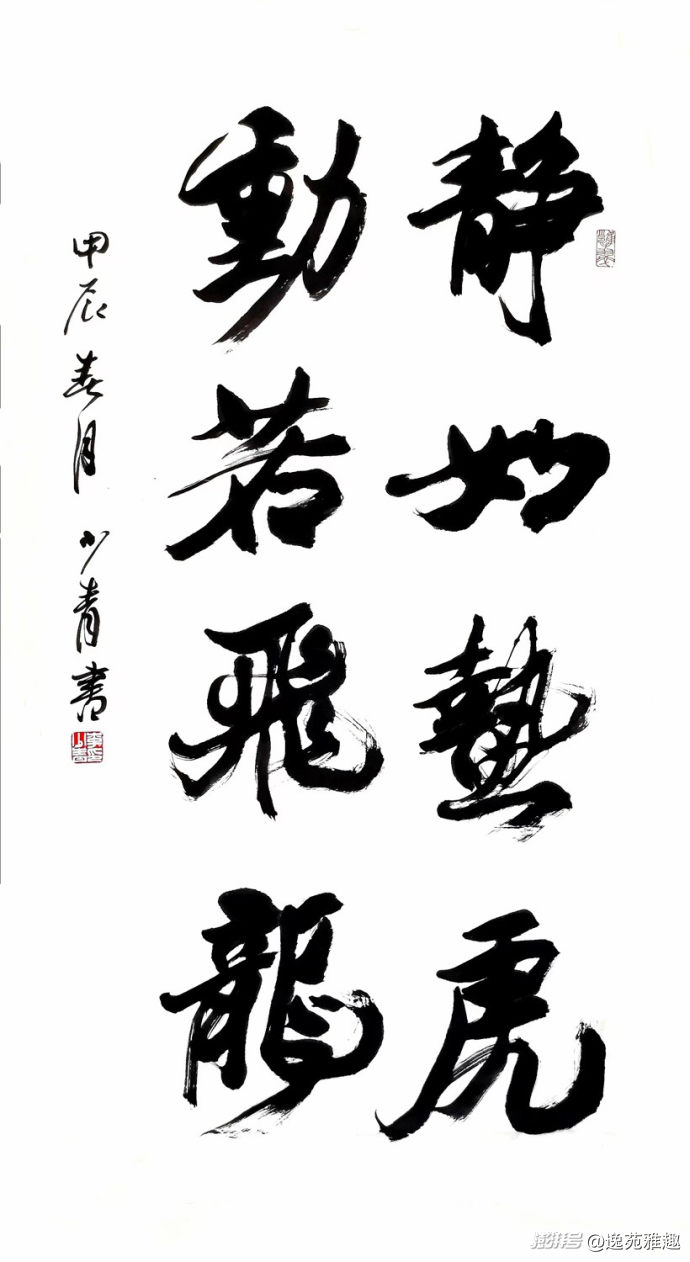 静如蟄虎
動若飛龍
甲辰春月 少青書
澎湃号 @逸苑雅趣